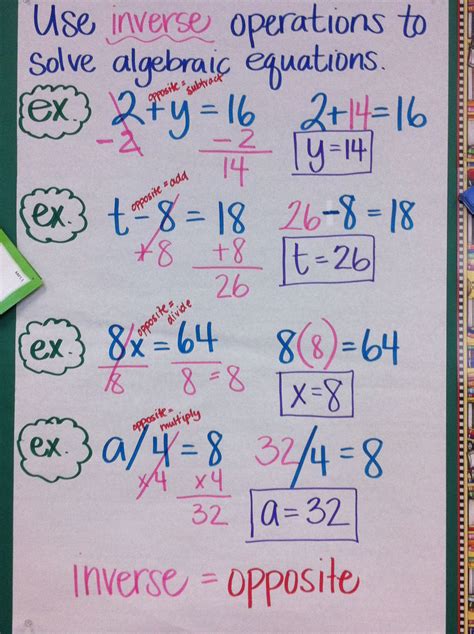 Use inverse operations to
solve algebraic equations.
ex. 2+y=16 2+14=16
opposite = subtract
-2 -2 y=14
14
ex. t-8=18 26-8=18
opposite = add
+8 +8 t=26
26
ex. 8x=64 8(8)=64
opposite = divide
/8 8 = 8 x=8
ex. a/4=8 32/4=8
opposite = multiply
x4 x4 a=32
32
Inverse = opposite